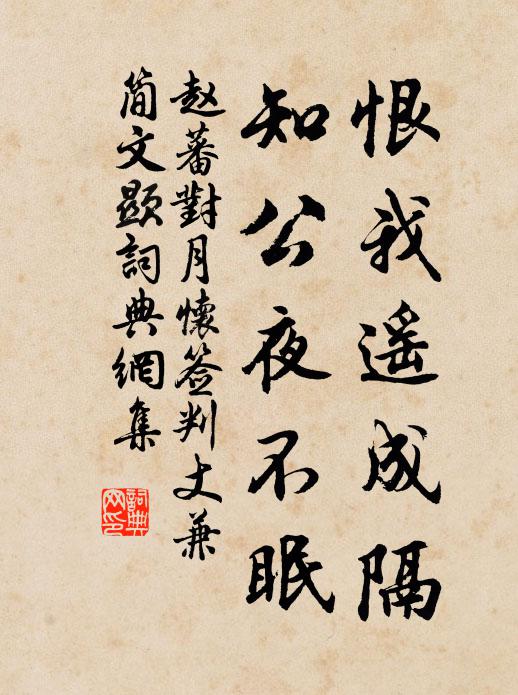 恨我遥成隔
知公夜不眠
赵蕃對月懷簽判丈兼
簡文顯詞典網集
詞典
网印